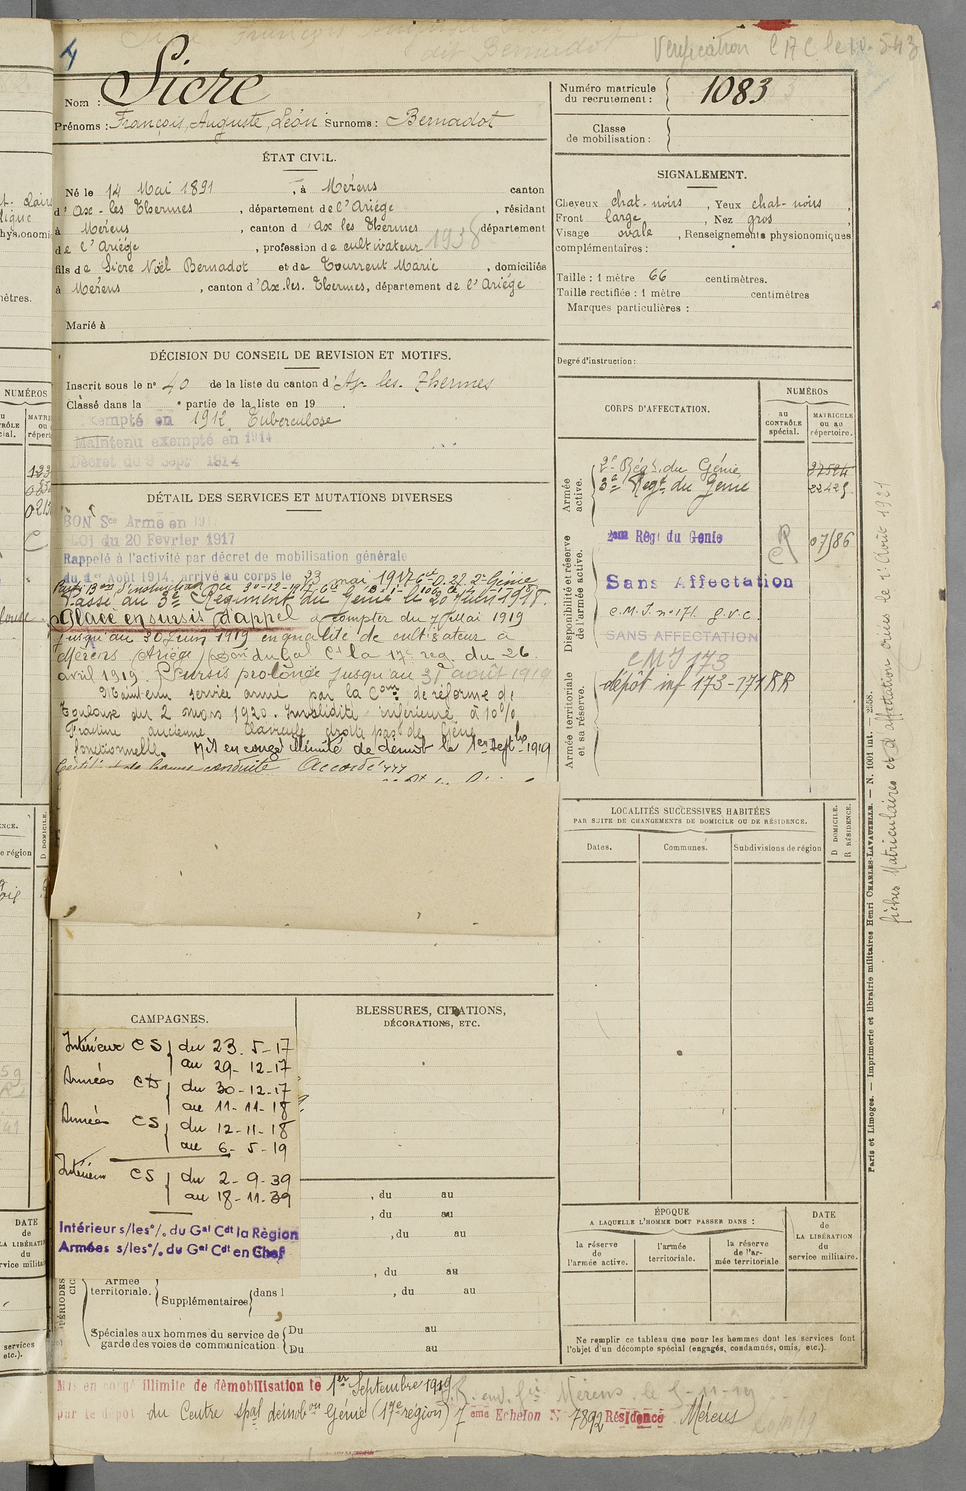 4
Vérification C M C le 10.5.43
Nom : Sicre
Prénoms : François, Auguste, Léon Surnoms : Bernadot
Numéro matricule
du recrutement : 1083
Classe
de mobilisation :
ÉTAT CIVIL.
Né le 14 Mai 1891, à Mérens canton
d'Ax-les Thermes, département de l'Ariége, résidant
à Mérens, canton d'ax les Thermes département
de l'Ariége, profession de cultivateur 1938
fils de Sicre Noël Bernadot et de Tourrent Marie, domiciliés
à Mérens, canton d'Ax.les.Thermes, département de l'Ariége
Marié à
SIGNALEMENT.
Cheveux chat-noirs, Yeux chat-noirs,
Front large, Nez gros
Visage ovale, Renseignements physionomiques
complémentaires :
Taille : 1 mètre 66 centimètres.
Taille rectifiée : 1 mètre centimètres
Marques particulières :
Degré d'instruction :
DÉCISION DU CONSEIL DE REVISION ET MOTIFS.
Inscrit sous le n° 40 de la liste du canton d'Ax-les-Thermes
Classé dans la ° partie de la liste en 19 .
Exempté en 1912 Tuberculose
Maintenu exempté en 1914
Décret du 9 Sept 1914
DÉTAIL DES SERVICES ET MUTATIONS DIVERSES
BON Sce Armé en 191
LOI du 20 Février 1917
Rappelé à l'activité par décret de mobilisation générale
du 1er Août 1914, arrivé au corps le 23 mai 1917
Passé au 3e Régiment du Génie le 20 Juin 1918.
Placé en sursis d'appel à compter du 7 Mai 1919
jusqu'au 30 Juin 1919 en qualité de cultivateur à
Mérens (Ariège) Don du Gal Ct la 17e rég. du 26
avril 1919. Sursis prolongé jusqu'au 31 août 1919
Maintenu service armé par la Con de réforme de
Toulouse du 2 mars 1920. Invalidité inférieure à 10%
Fracture ancienne clavicule droite pas de gêne
fonctionnelle. Mis en congé illimité de démob le 1er Septbre 1919
Certificat de bonne conduite Accordé
CORPS D'AFFECTATION.
NUMÉROS
au
CONTRÔLE
spécial.
MATRICULE
ou au
répertoire.
Armée
active.
2e Régt. du Génie
3e Regt du Génie 22425
Disponibilité et réserve
de l'armée active.
2ème Rég. du Genie R 07586
Sans Affectation
C.M.I. n° 171 g.v.c.
SANS AFFECTATION
CMI 173
Armée territoriale
et sa réserve.
dépôt inf 173-171 RR
LOCALITÉS SUCCESSIVES HABITÉES
PAR SUITE DE CHANGEMENTS DE DOMICILE OU DE RÉSIDENCE.
Dates.
Communes.
Subdivisions de région
D DOMICILE.
R RÉSIDENCE.
CAMPAGNES.
Intérieur CS du 23-5-17
au 29-12-17
Armées CD du 30-12-17
au 11-11-18
Armées CS du 12-11-18
au 6-5-19
Intérieur CS du 2-9-39
au 18-11-39
Intérieur s/les°/. du Gal Cdt la Règion
Armées s/les°/. du Gal Cdt en Chef
BLESSURES, CITATIONS,
DÉCORATIONS, ETC.
, du au
, du au
, du au
, du au
Armée
territoriale.
Supplémentaires
dans l , du au
Spéciales aux hommes du service de
garde des voies de communication.
Du au
Du au
ÉPOQUE
A LAQUELLE L'HOMME DOIT PASSER DANS :
la réserve
de
l'armée active.
l'armée
territoriale.
la réserve
de l'ar-
mée territoriale
DATE
de
LA LIBÉRATION
du
service militaire.
Ne remplir ce tableau que pour les hommes dont les services font
l'objet d'un décompte spécial (engagés, condamnés, omis, etc.).
Mis en congé illimité de démobilisation le 1er Septembre 1919
par le dépot du Centre spal démobon Génie (17e région) 7 eme Echelon N° 7892 Résidence Mérens
Paris et Limoges. — Imprimerie et librairie militaires Henri CHARLES-LAVAUZELLE. — N. 1001 int. — 2558.
fiches Matriculaires et d'affectation crées le 1er Août 1921
NUMÉROS
DATE
de
LA LIBÉRATION
du
service militaire
services
etc.).